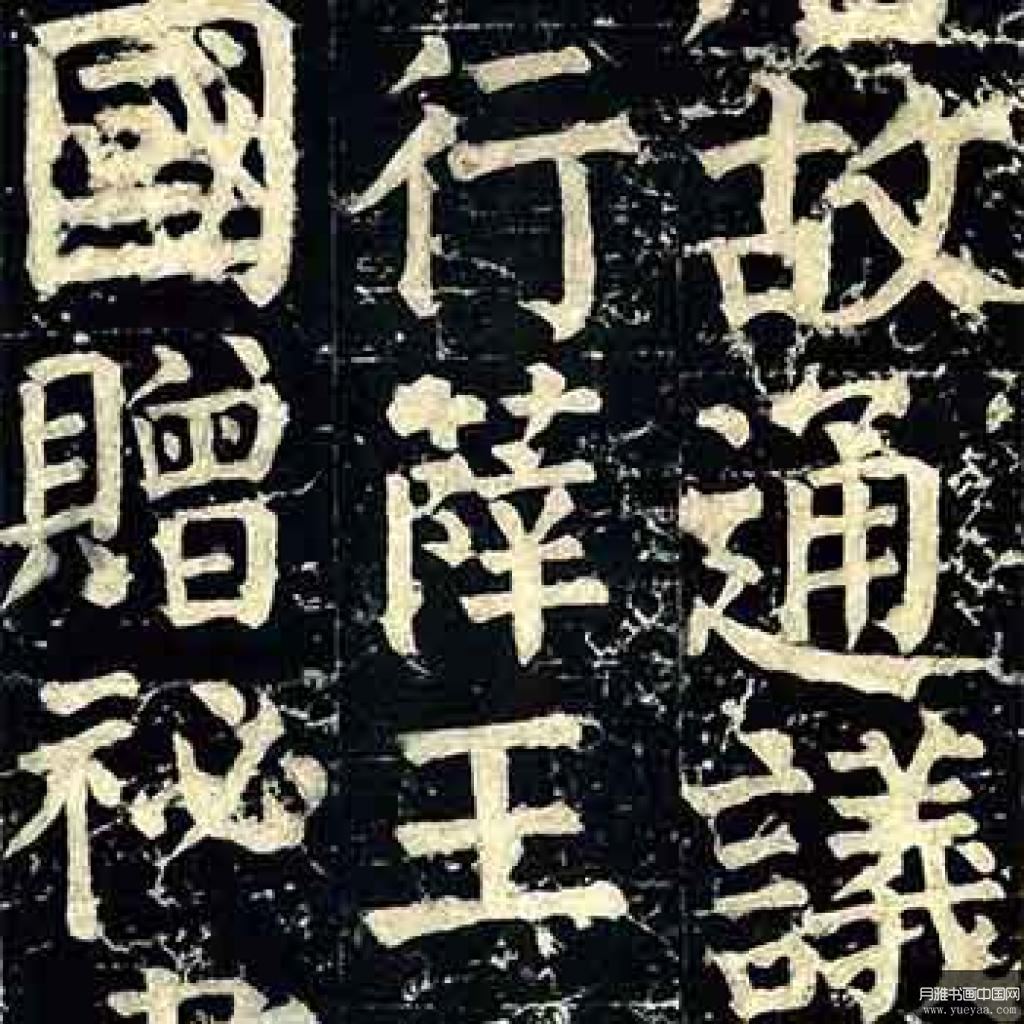 故通議
行薛王
國贈祕
月雅书画中国网
www.yueyaa.com